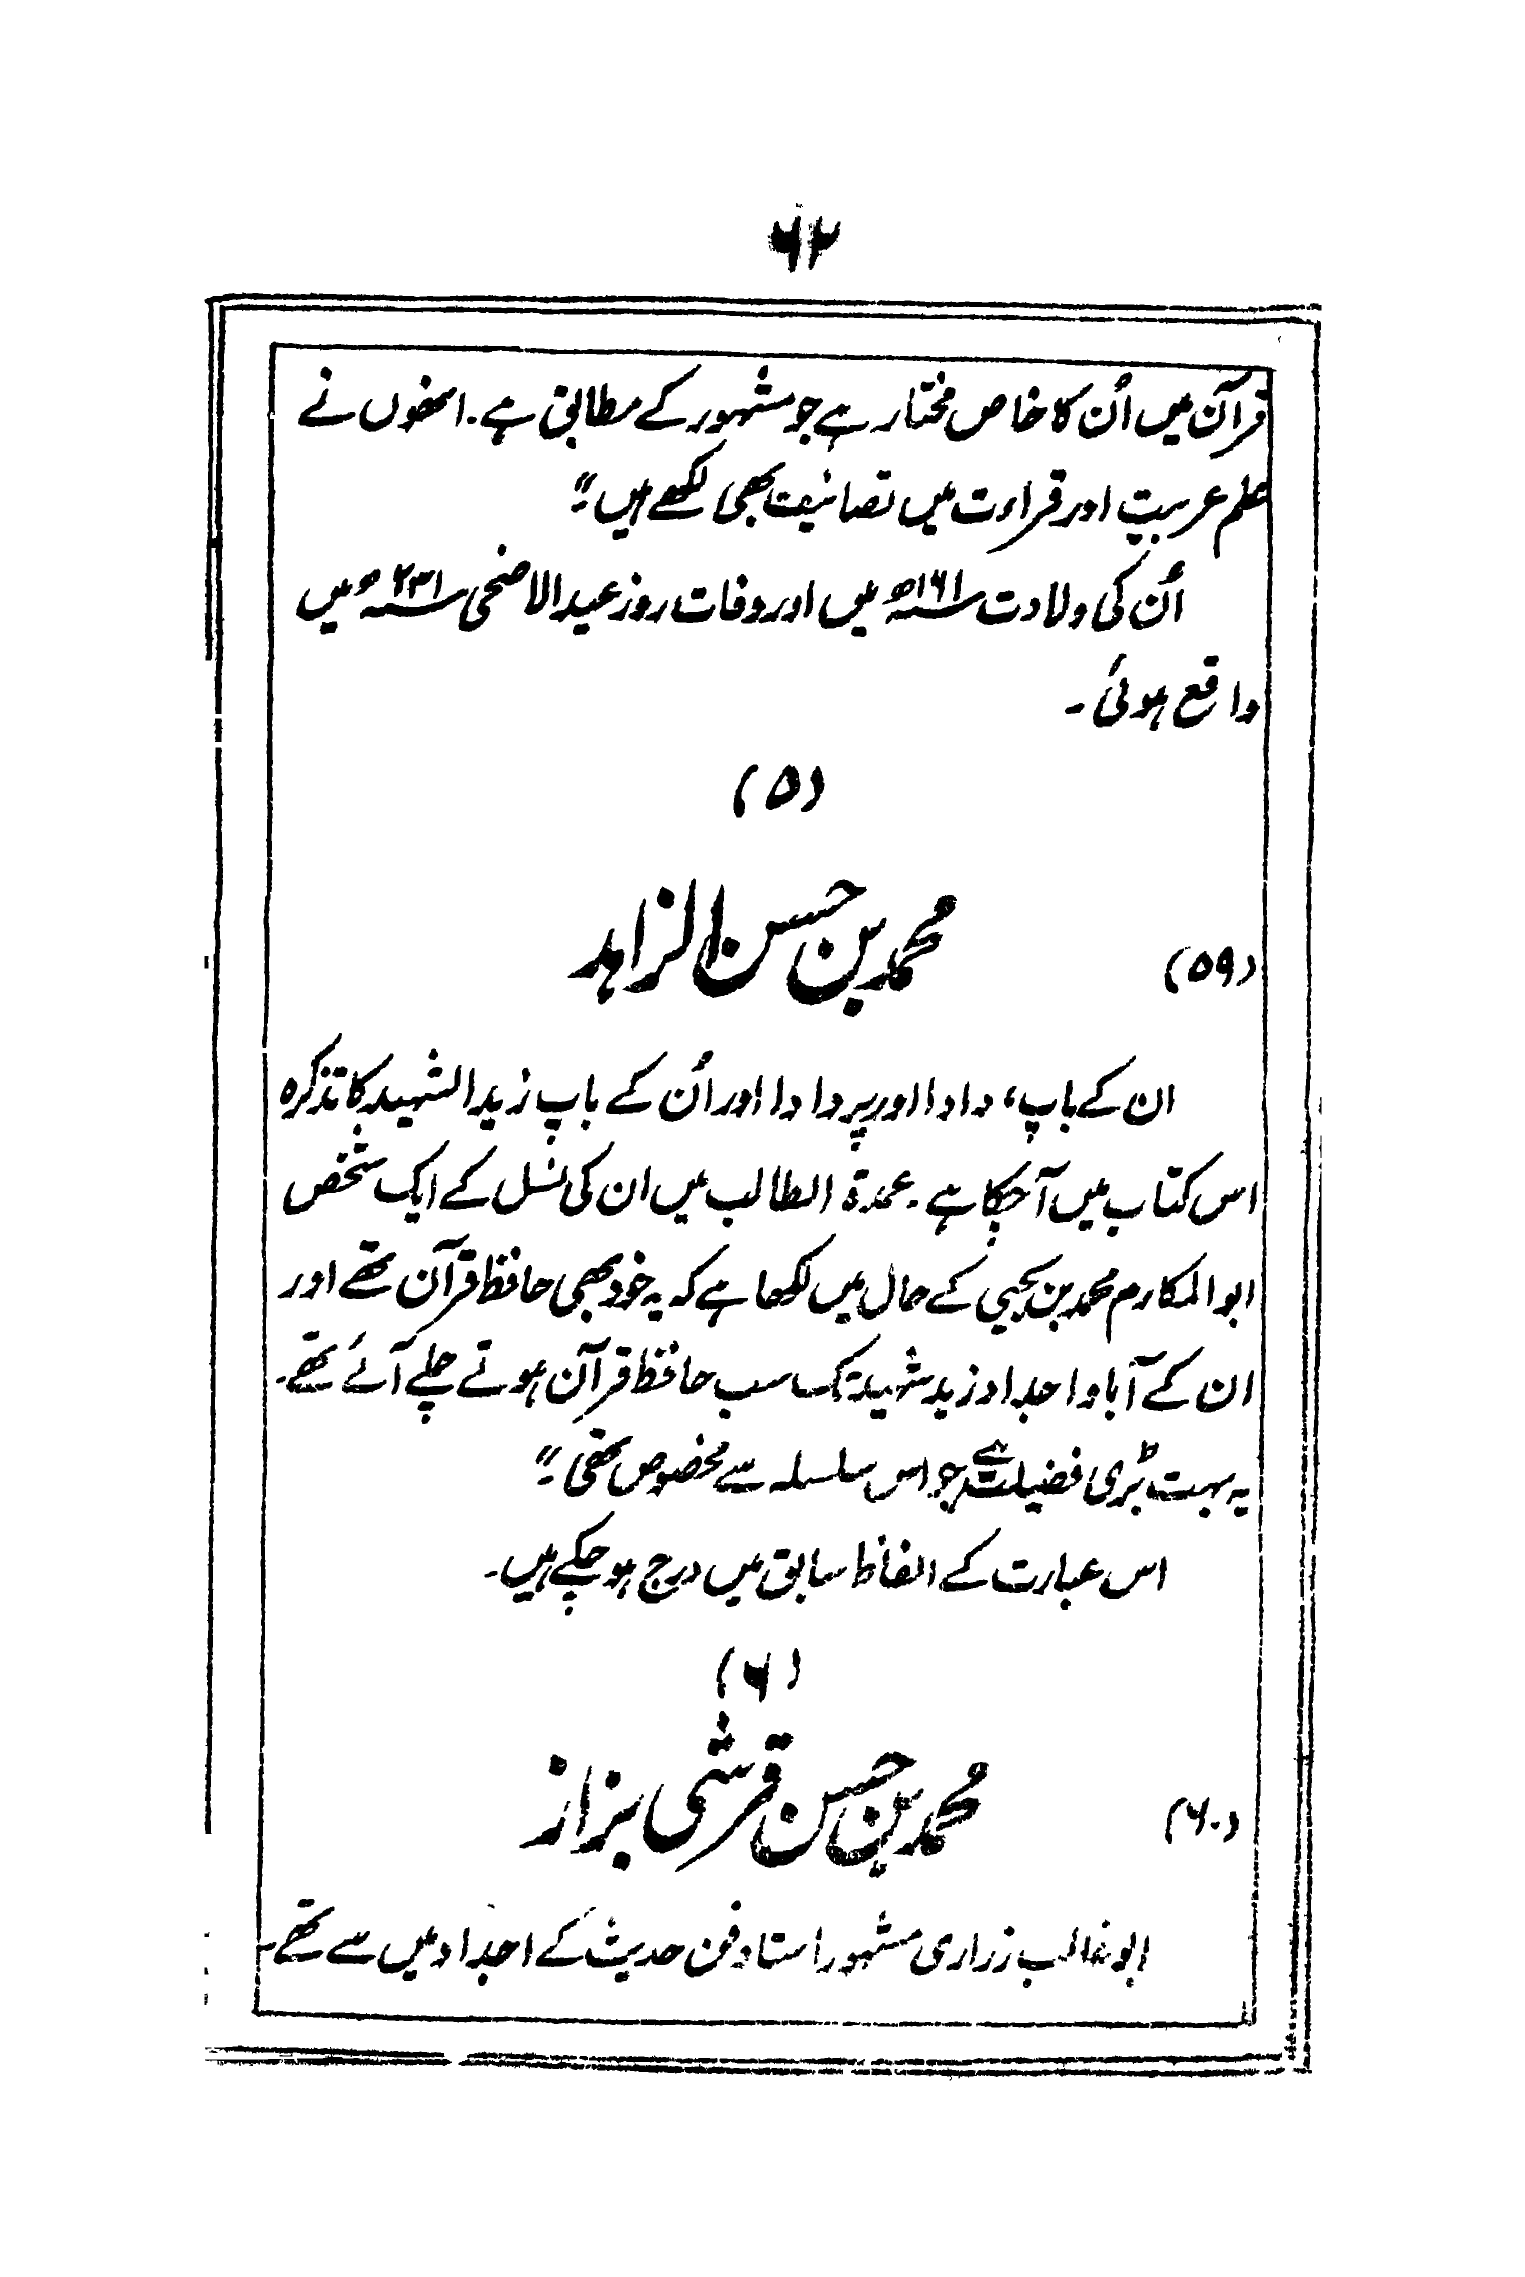 ۶۲
قرآن میں اُن کا خاص مختار ہے جو مشہور کے مطابق ہے۔ انھوں نے
علم عربیت اور قراءت میں تصانیف بھی لکھے ہیں۔"
اُن کی ولادت سنہ ۱۶۱ھ میں اور وفات روز عید الاضحی سنہ ۲۳۱ھ میں
واقع ہوئی۔
(۵)
(۵۹) محمد بن حسن الزاہد
ان کے باپ، دادا اور پردادا اور اُن کے باپ زید الشہید کا تذکرہ
اس کتاب میں آچکا ہے۔ عمدۃ الطالب میں ان کی نسل کے ایک شخص
ابوالمکارم محمد بن یحییٰ کے حال میں لکھا ہے کہ یہ خود بھی حافظ قرآن تھے اور
ان کے آباو اجداد زید شہید تک سب حافظ قرآن ہوتے چلے آئے تھے۔
یہ بہت بڑی فضیلت ہے جو اس سلسلہ سے مخصوص تھی۔"
اس عبارت کے الفاظ سابق میں درج ہوچکے ہیں۔
(۶)
(۶۰) محمد بن حسن قرشی بزاز
ابو غالب زراری مشہور استاد فن حدیث کے اجداد میں سے تھے۔